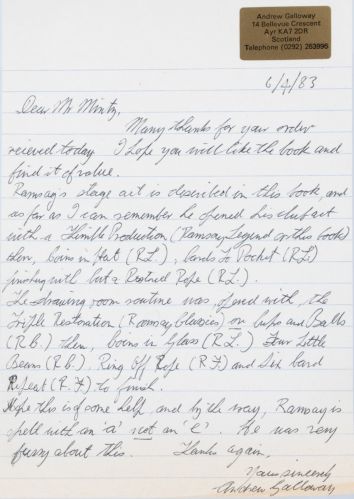 Andrew Galloway
14 Bellevue Crescent
Ayr KA7 2DR
Scotland
Telephone (0292) 263995
6/4/83
Dear Mr Mintz,
Many thanks for your order
recieved today. I hope you will like the book and
find it of value.
Ramsay's stage act is described in this book, and
as far as I can remember he opened his club act
with a Thimble Production (Ramsay Legend or this book)
then, Coins in Hat (R.L.), Cards to Pocket (R.L.)
finishing with Cut & Restored Rope (R.L.).
The drawing room routine was, opened with, the
Triple Restoration (Ramsay Classics) or Cups and Balls
(R.B.) then, Coins in Glass (R.L.) Four Little
Beans (R.B.), Ring Off Rope (R.F) and Six Card
Repeat (R.F.) to finish.
Hope this is of some help, and by the way, Ramsay is
spelt with an 'a' not an 'e'. He was very
fussy about this. Thanks again,
Yours sincerely
Andrew Galloway